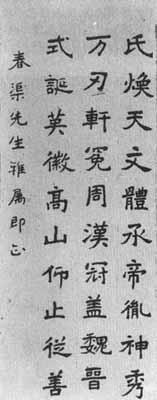 氏煥天文體承帝胤神秀
万刃軒冕周漢冠盖魏晉
式誕英徽髙山仰止從善
春渠先生雅属即正